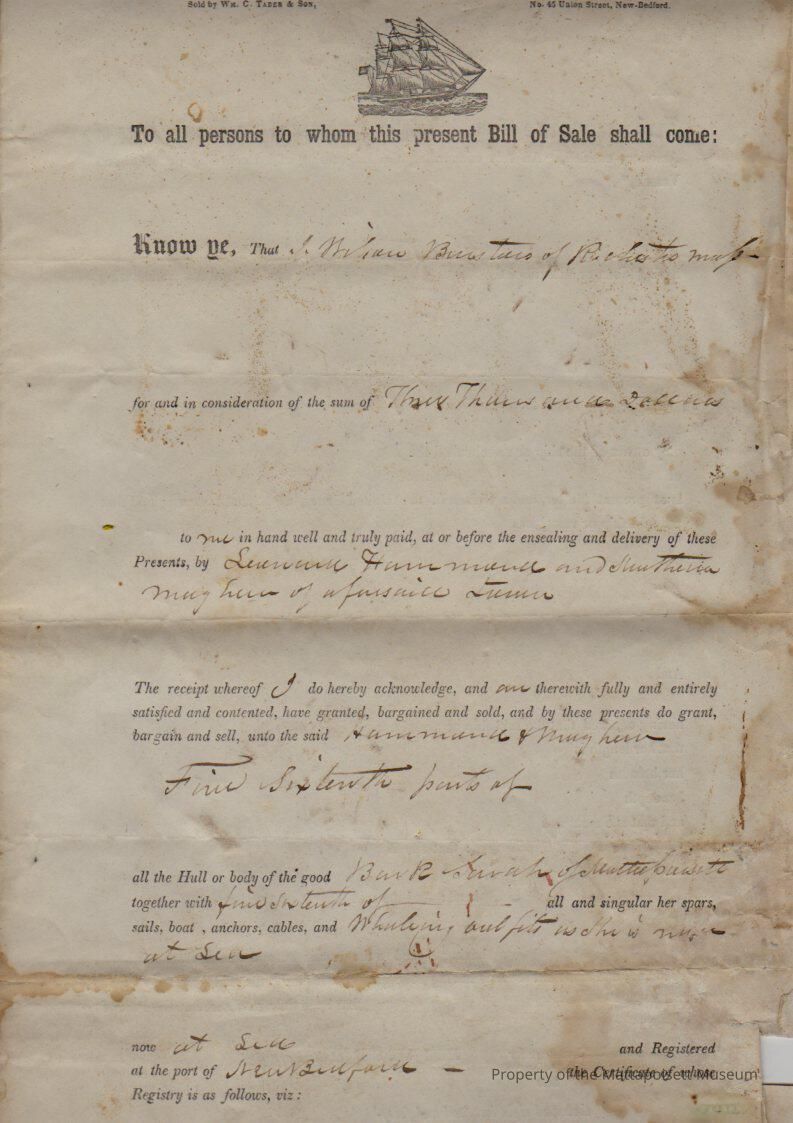 Sold by Wm. C. Taber & Son, No. 45 Union Street, New-Bedford.
To all persons to whom this present Bill of Sale shall come:
Know ye, That I Wilson Barstow of Rochester Mass
for and in consideration of the sum of Three Thousand Dollars
to me in hand well and truly paid, at or before the ensealing and delivery of these
Presents, by Leonard Hammond and
Mayhew of aforesaid Town
The receipt whereof I do hereby acknowledge, and am therewith fully and entirely
satisfied and contented, have granted, bargained and sold, and by these presents do grant,
bargain and sell, unto the said Hammond & Mayhew
Five Sixtenth parts of
all the Hull or body of the good Bark Sarah of Mattapoisett
together with five Sixtenth of all and singular her spars,
sails, boat , anchors, cables, and Whaleing outfits as she is now
at Sea
now at Sea and Registered
at the port of New Bedford the Certificate of whose
Registry is as follows, viz:
Property of the Mattapoisett Museum